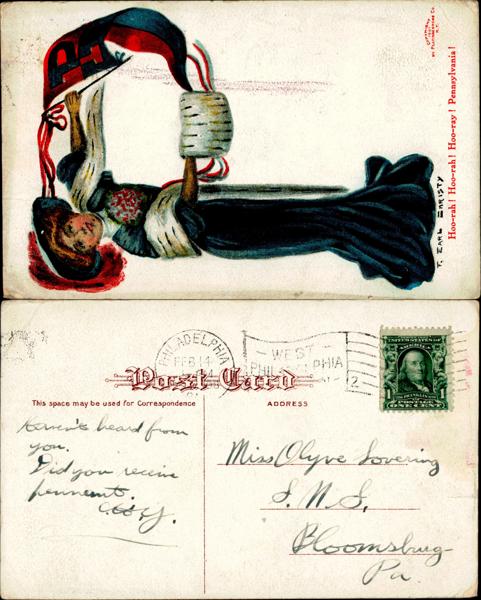 Hoo-rah! Hoo-rah! Hoo-ray! Pennsylvania!
F. EARL CHRISTY
PHILADELPHIA
FEB 14
WEST
PHILADELPHIA
2
UNITED STATES OF
AMERICA
1 FRANKLIN 1
POSTAGE
ONE CENT
Post Card
This space may be used for Correspondence
ADDRESS
Haven't heard from
you.
Did you receive
pennant.
Miss Olyve Lovering
S. N. S.
Bloomsburg
Pa.